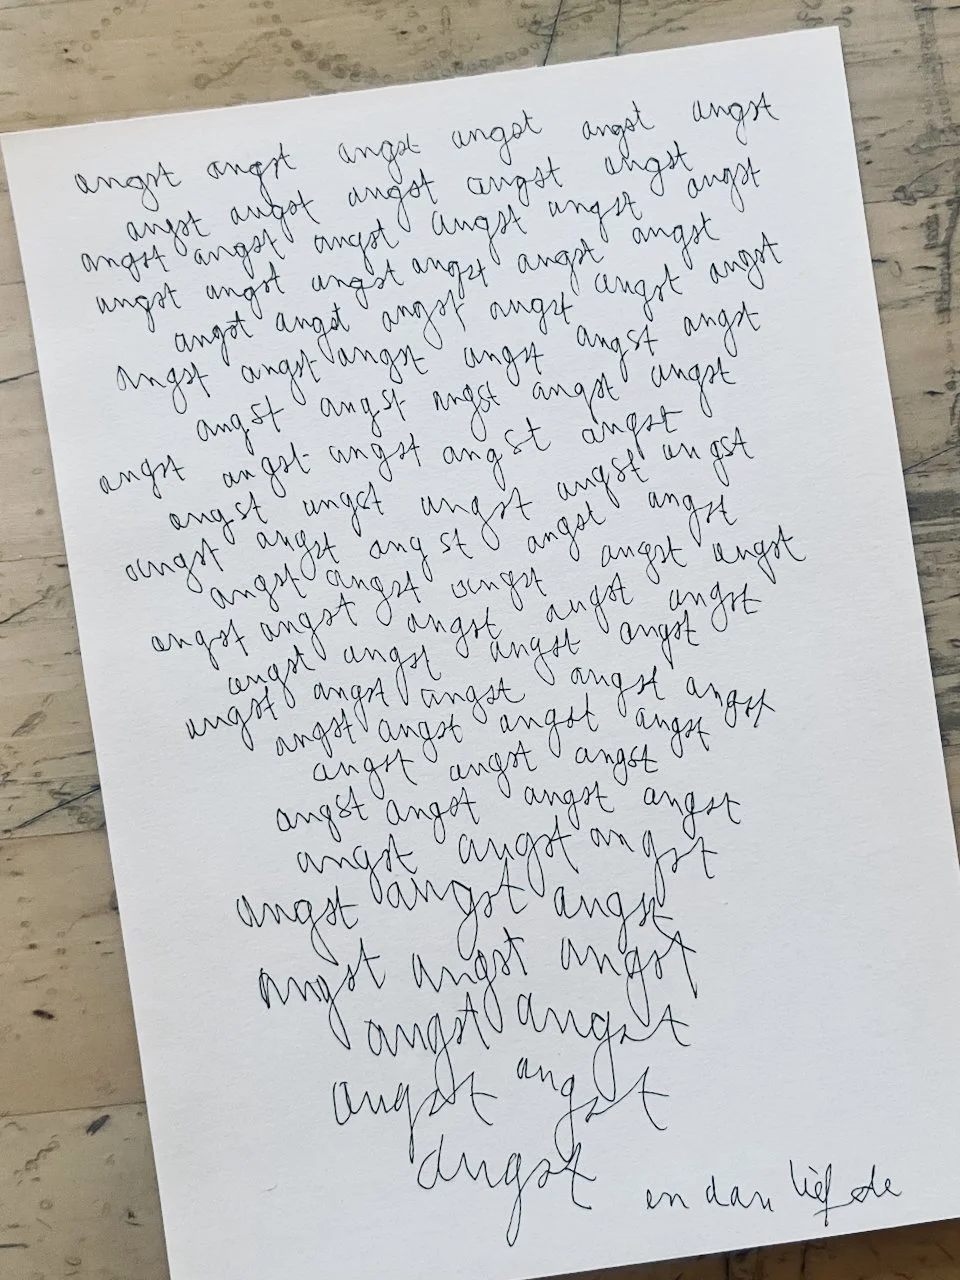 angst angst angst angst angst angst
angst angst angst angst angst
angst angst angst angst angst angst
angst angst angst angst angst angst
angst angst angst angst angst angst
angst angst angst angst angst angst
angst angst angst angst angst
angst angst angst angst angst
angst angst angst angst angst
angst angst angst angst angst
angst angst angst angst angst
angst angst angst angst angst
angst angst angst angst
angst angst angst angst angst
angst angst angst angst
angst angst angst
angst angst angst angst
angst angst angst
angst angst angst
angst angst angst
angst angst
angst angst
angst en dan liefde